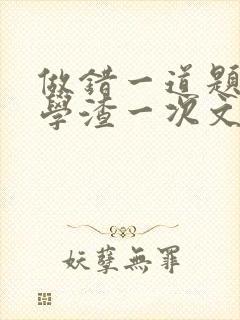 做錯一道題
學渣一次文
妖孽無罪